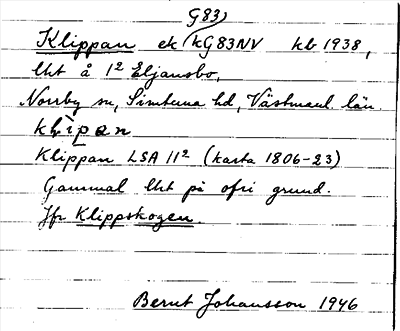 G83)
Klippan ek (kG83NV kb 1938,
lht å 1² Eljansbo,
Norrby sn, Simtuna hd, Västmanl. län.
klìpan
Klippan LSA 11² (karta 1806-23)
Gammal lht på ofri grund.
Jfr Klippskogen.
Bernt Johansson 1946